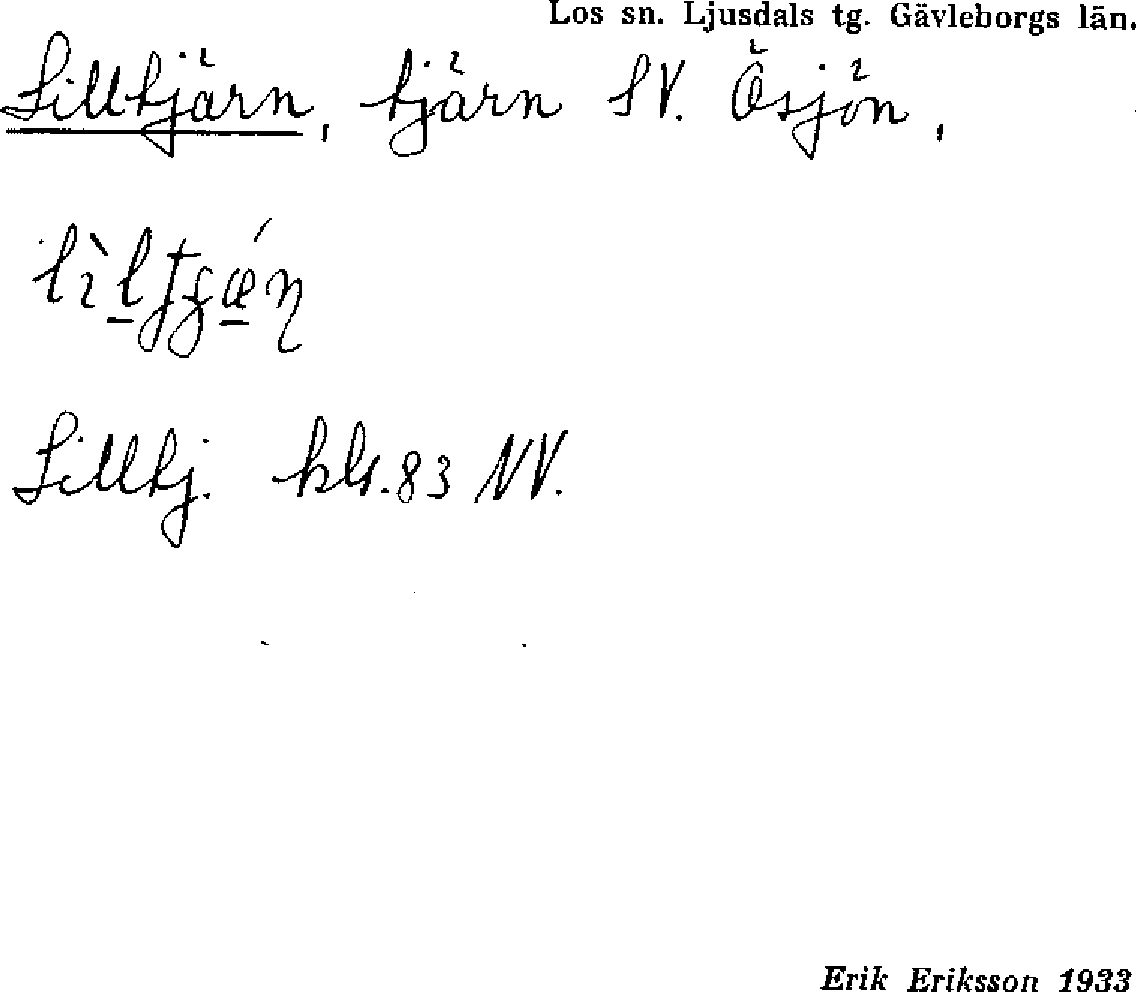 Los sn. Ljusdals tg. Gävleborgs län.
Lilltjärn, tjärn SV. Ösjön,
Lilltj. kbl. 83 NV.
Erik Eriksson 1933